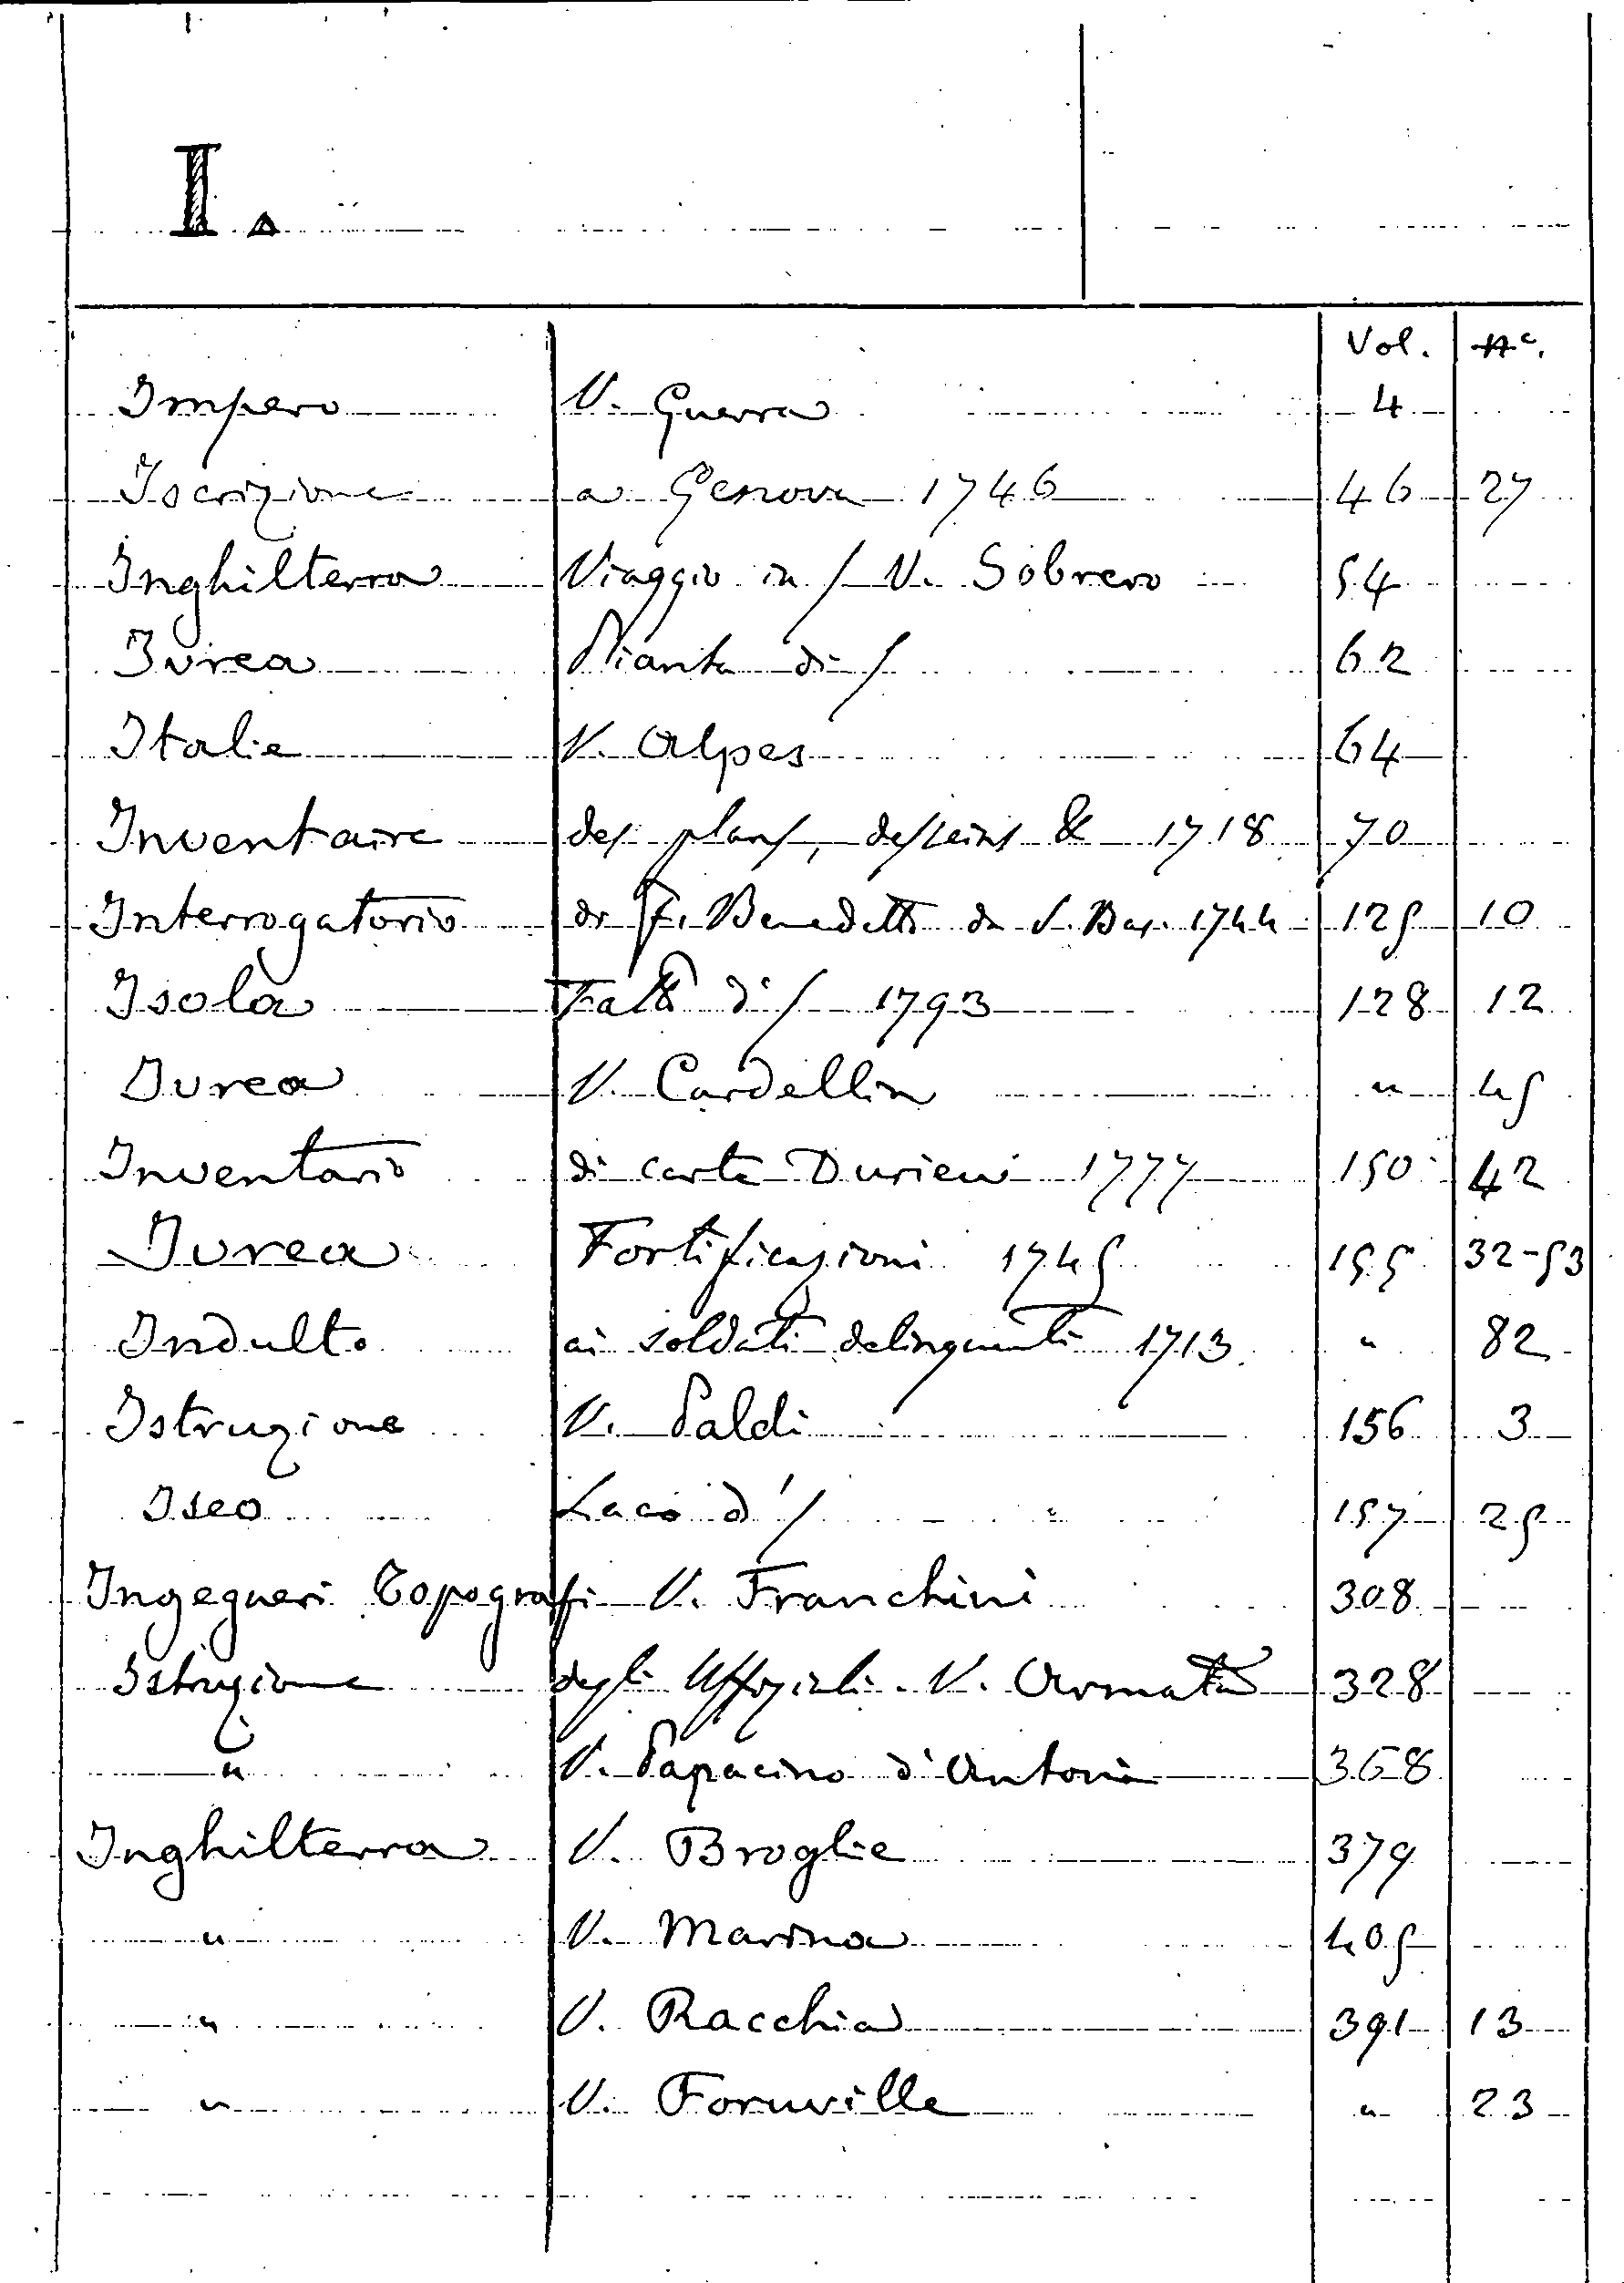 I.
Vol. No.
Impero V. Guerra 4
Iscrizione a Genova 1746 46 27
Inghilterra Viaggio in / V. Sobrero 54
Ivrea Pianta di / 62
Italie V. Alpes 64
Inventaire des plans, desseins & 1718 70
Interrogatorio di F. Benedetto da S. Bas. 1744 125 10
Isola Fatto d' / 1793 128 12
Ivrea V. Cardellin " 45
Inventario di carte Durieu 1777 150 42
Ivrea Fortificazioni 1745 155 32-53
Indulto ai soldati delinquenti 1713 " 82
Istruzione V. Paldi 156 3
Iseo Laco d' / 157 25
Ingegneri Topografi V. Franchini 308
Istruzione degli Uffiziali. V. Armata 328
" V. Papacino d'Antoni 368
Inghilterra V. Broglie 379
" V. Marina 405
" V. Racchia 391 13
" V. " 23